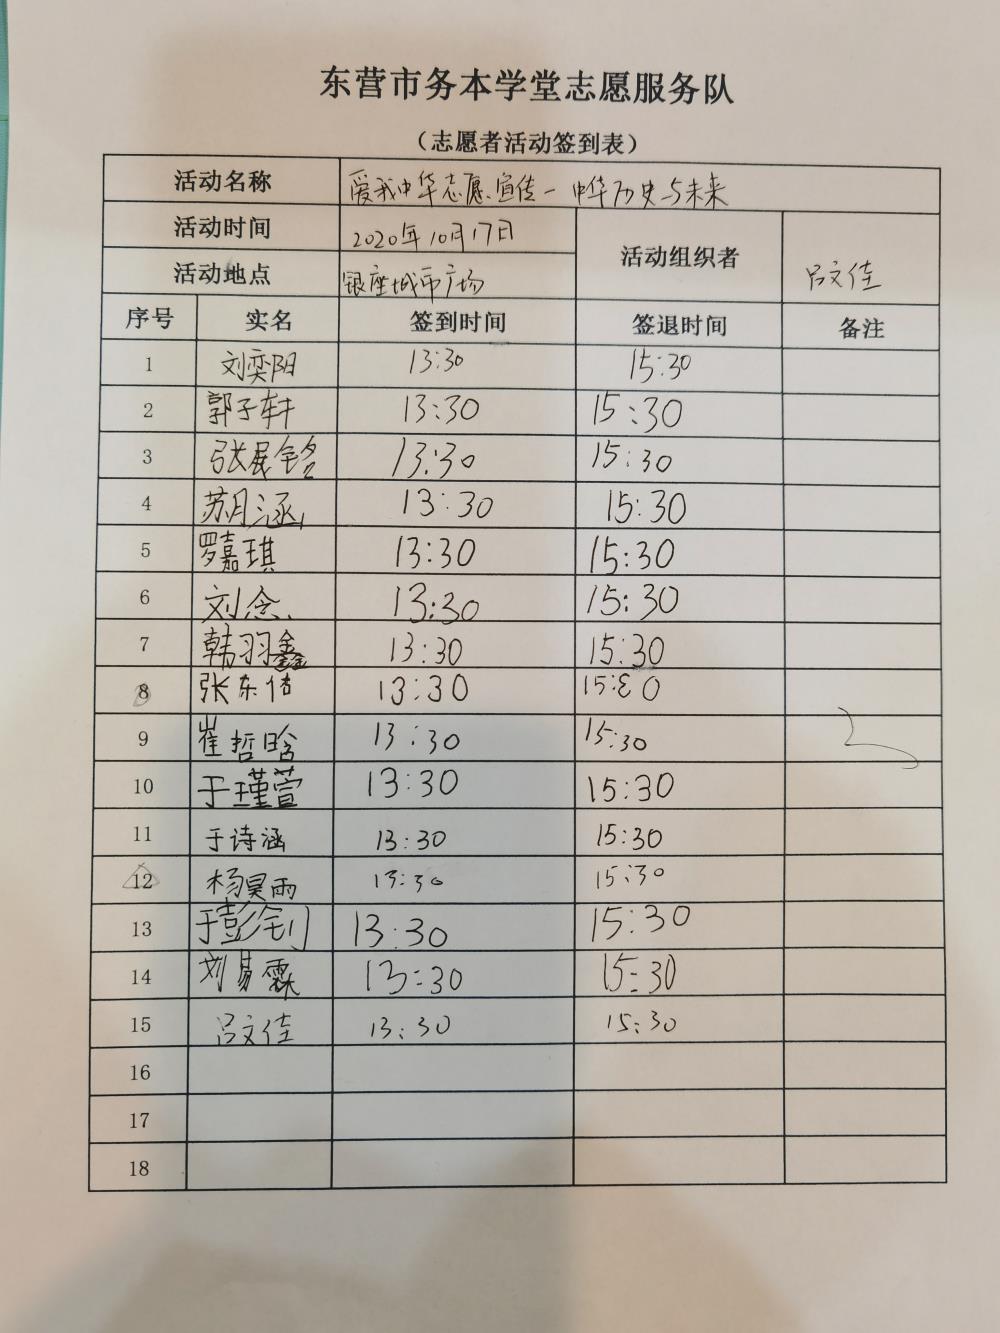 东营市务本学堂志愿服务队
（志愿者活动签到表）
活动名称 爱我中华志愿宣传－中华历史与未来
活动时间 2020年10月17日 活动组织者 吕文佳
活动地点 银座城市广场
序号 实名 签到时间 签退时间 备注
1 刘奕阳 13:30 15:30
2 郭子轩 13:30 15:30
3 张展铭 13:30 15:30
4 苏月涵 13:30 15:30
5 罗嘉琪 13:30 15:30
6 刘念 13:30 15:30
7 韩羽鑫 13:30 15:30
8 张东佑 13:30 15:30
9 崔哲晗 13:30 15:30
10 于瑾萱 13:30 15:30
11 于诗涵 13:30 15:30
12 杨昊雨 13:30 15:30
13 于彭钊 13:30 15:30
14 刘易霖 13:30 15:30
15 吕文佳 13:30 15:30
16
17
18